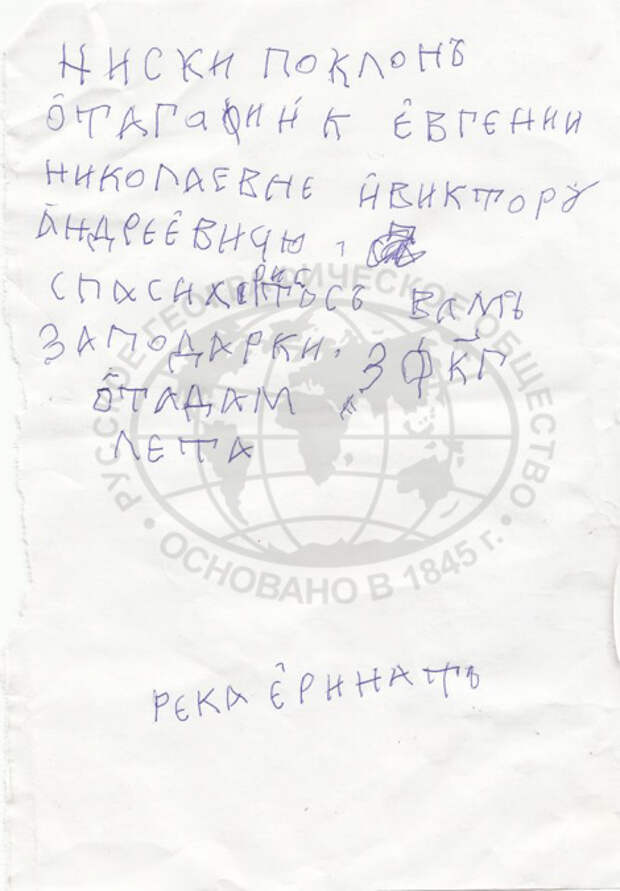 НИСКИ ПОКЛОНЪ
ѾТАГАФИИ К ЕВГЕНИИ
НИКОЛАЕВНЕ ИВИКТОРУ
АНДРЕЕВИЧЮ,
СПАСИХРИСТОСЪ ВАМЪ
ЗАПОДАРКИ.
ѾТАДАМ
ЛЕТА
РЕКА ЕРИНАТЪ
РУССКОЕ ГЕОГРАФИЧЕСКОЕ ОБЩЕСТВО
ОСНОВАНО В 1845 г.